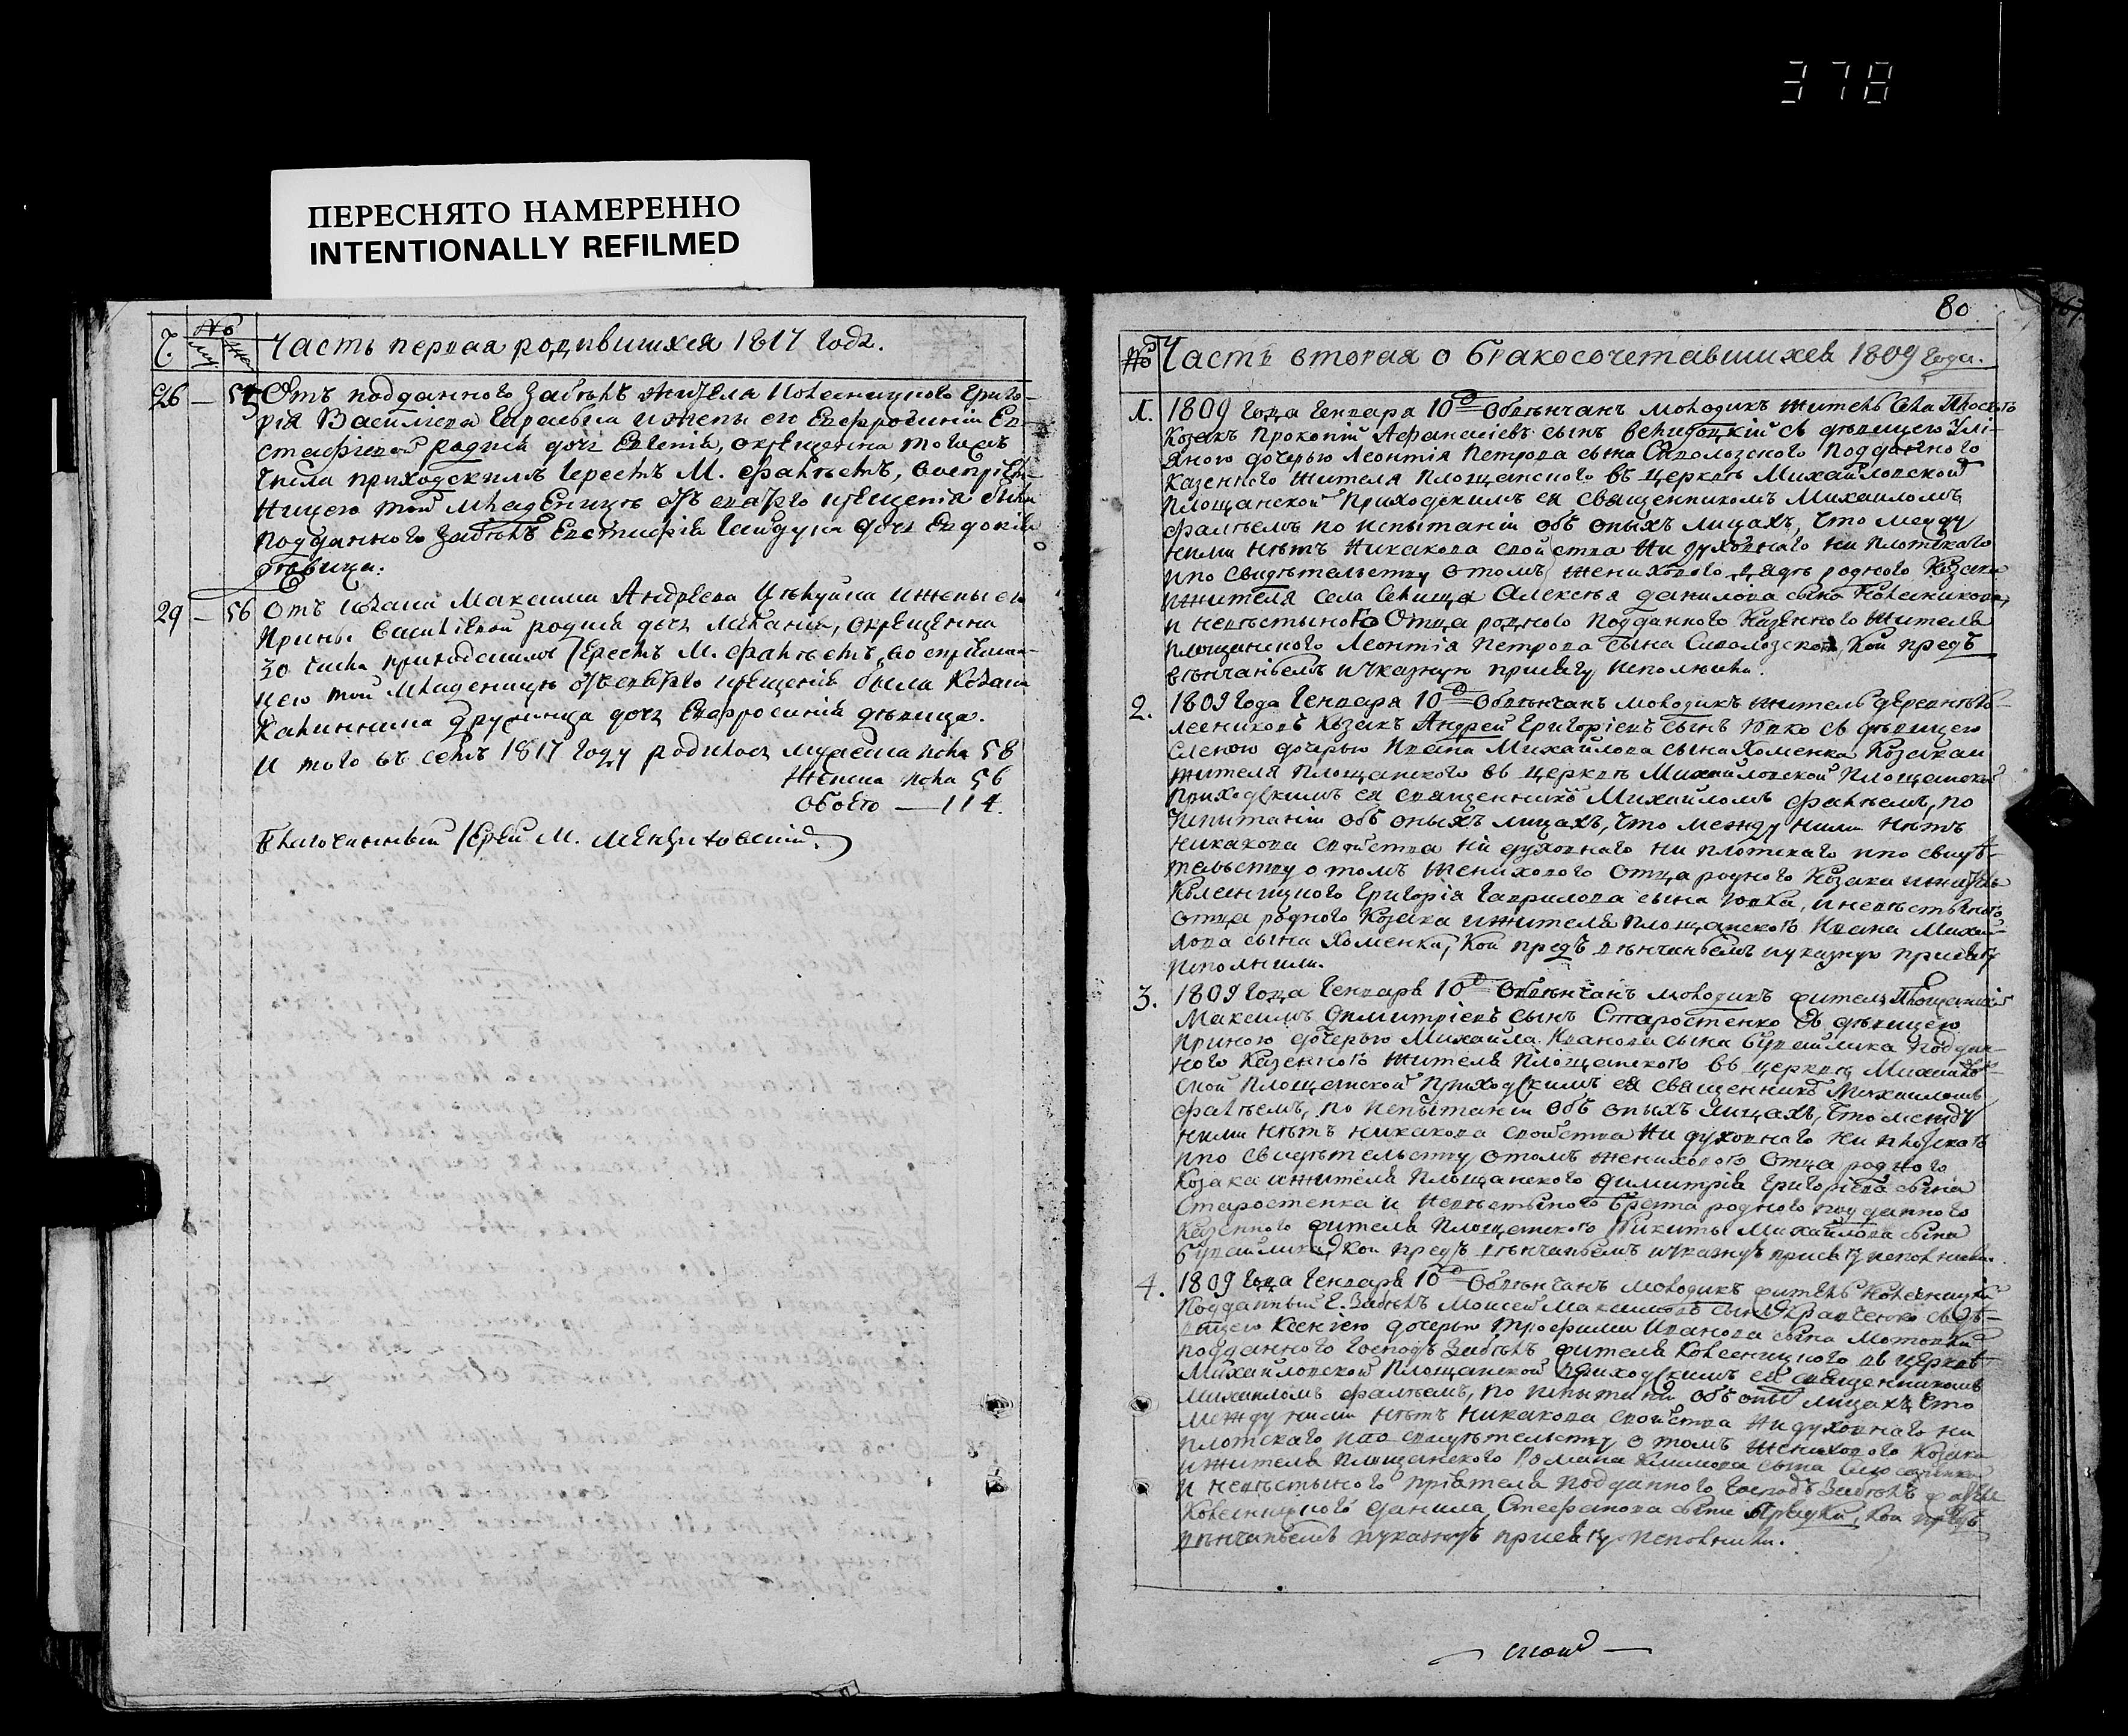 378
ПЕРЕСНЯТО НАМЕРЕННО
INTENTIONALLY REFILMED
Ч. № му же Часть первая родившихся 1817 года.
26 — 55 Отъ подданного Забѣлъ жителя Колесницкого Григо-
рія Василіева и жены его Евфросиніи Ев-
стафіевой родися дочь Евгенія, окрещенна тогожъ
числа приходскимъ Іереемъ М. Фалѣемъ, воспріем-
ницею той младеницѣ отъ святаго крещенія была
подданного Забѣлъ Евстафія Гайдука дочь Евдокія
дѣвица.
29 — 56 Отъ козака Максима Андреева и жены его
Ирины Василіевой родися дочь Меланія, окрещенна
30 числа приходскимъ Іереемъ М. Фалѣемъ, воспріемни-
цею той младеницѣ отъ святаго крещенія была козака
Калинника дочь Евфросинія дѣвица.
И того въ семъ 1817 году родилось мужеска пола 58
Женска пола 56
Обоего — 114.
Благочинный Іерей М.
80
№ Часть вторая о бракосочетавшихся 1809 года.
1. 1809 года Генваря 10го Обвѣнчанъ молодикъ житель села
Козакъ Прокопій Афанасіевъ сынъ съ дѣвицею Улі-
яною дочерью Леонтія Петрова сына Подданного
Казенного жителя Площанского въ церквѣ Михайловской
Площанской Приходскимъ ея священникомъ Михаиломъ
Фалѣемъ по испытаніи объ оныхъ лицахъ, что между
ними нѣтъ никакова свойства ни духовнаго ни плотскаго
и по свидѣтельству о томъ женихового дядѣ родного Козака
и жителя села Алексѣя Данилова сына Колесникова,
и невѣстыного Отца родного Подданного Казенного жителя
Площанского Леонтія Петрова сына кои предъ
вѣнчаніемъ и указную присягу исполнили.
2. 1809 года Генваря 10го Обвѣнчанъ молодикъ житель деревнѣ Ко-
лесниковъ Козакъ Андрей Григоріевъ сынъ съ дѣвицею
Еленою дочерью Ивана Михайлова сына Хоменка Козака и
жителя Площанского въ церквѣ Михайловской Площанской
приходскимъ ея священникомъ Михайломъ Фалѣемъ, по
испытаніи объ оныхъ лицахъ, что между ними нѣтъ
никакова свойства ни духовнаго ни плотскаго и по свидѣ-
тельству о томъ женихового Отца родного Козака и жителя
Колесницкого Григорія Гаврилова сына и невѣстыного
отца родного Козака и жителя Площанского Ивана Михай-
лова сына Хоменка, кои предъ вѣнчаніемъ и указную присягу
исполнили.
3. 1809 года Генваря 10го Обвѣнчанъ молодикъ житель Площанскій
Максимъ Димитріевъ сынъ Старостенко съ дѣвицею
Ириною дочерью Михайла Иванова сына Поддан-
ного Казенного жителя Площанского въ церквѣ Михайлов-
ской Площанской Приходскимъ ея священникомъ Михаиломъ
Фалѣемъ, по испытаніи объ оныхъ лицахъ, что между
ними нѣтъ никакова свойства ни духовнаго ни плотскаго
и по свидѣтельству о томъ женихового Отца родного
Козака и жителя Площанского Димитрія Григоріева сына
Старостенка и невѣстыного брата родного подданного
Казенного жителя Площанского Никиты Михайлова сына
кои предъ вѣнчаніемъ и указную присягу исполнили.
4. 1809 года Генваря 10го Обвѣнчанъ молодикъ житель Колесницкій
Подданный Г. Забѣлъ Моисей Максимовъ сынъ Кравченко съ дѣ-
вицею Ксеніею дочерью Трофима Иванова сына
подданного Господъ Забѣлъ жителя Колесницкого въ церквѣ
Михайловской Площанской приходскимъ ея священникомъ
Михаиломъ Фалѣемъ, по испытаніи объ оныхъ лицахъ, что
между ними нѣтъ никакова свойства ни духовнаго ни
плотскаго и по свидѣтельству о томъ женихового Козака
и жителя Площанского Романа Климова сына
и невѣстыного пріятеля подданного Господъ Забѣлъ жителя
Колесницкого Данила Стефанова сына кои предъ
вѣнчаніемъ и указную присягу исполнили.